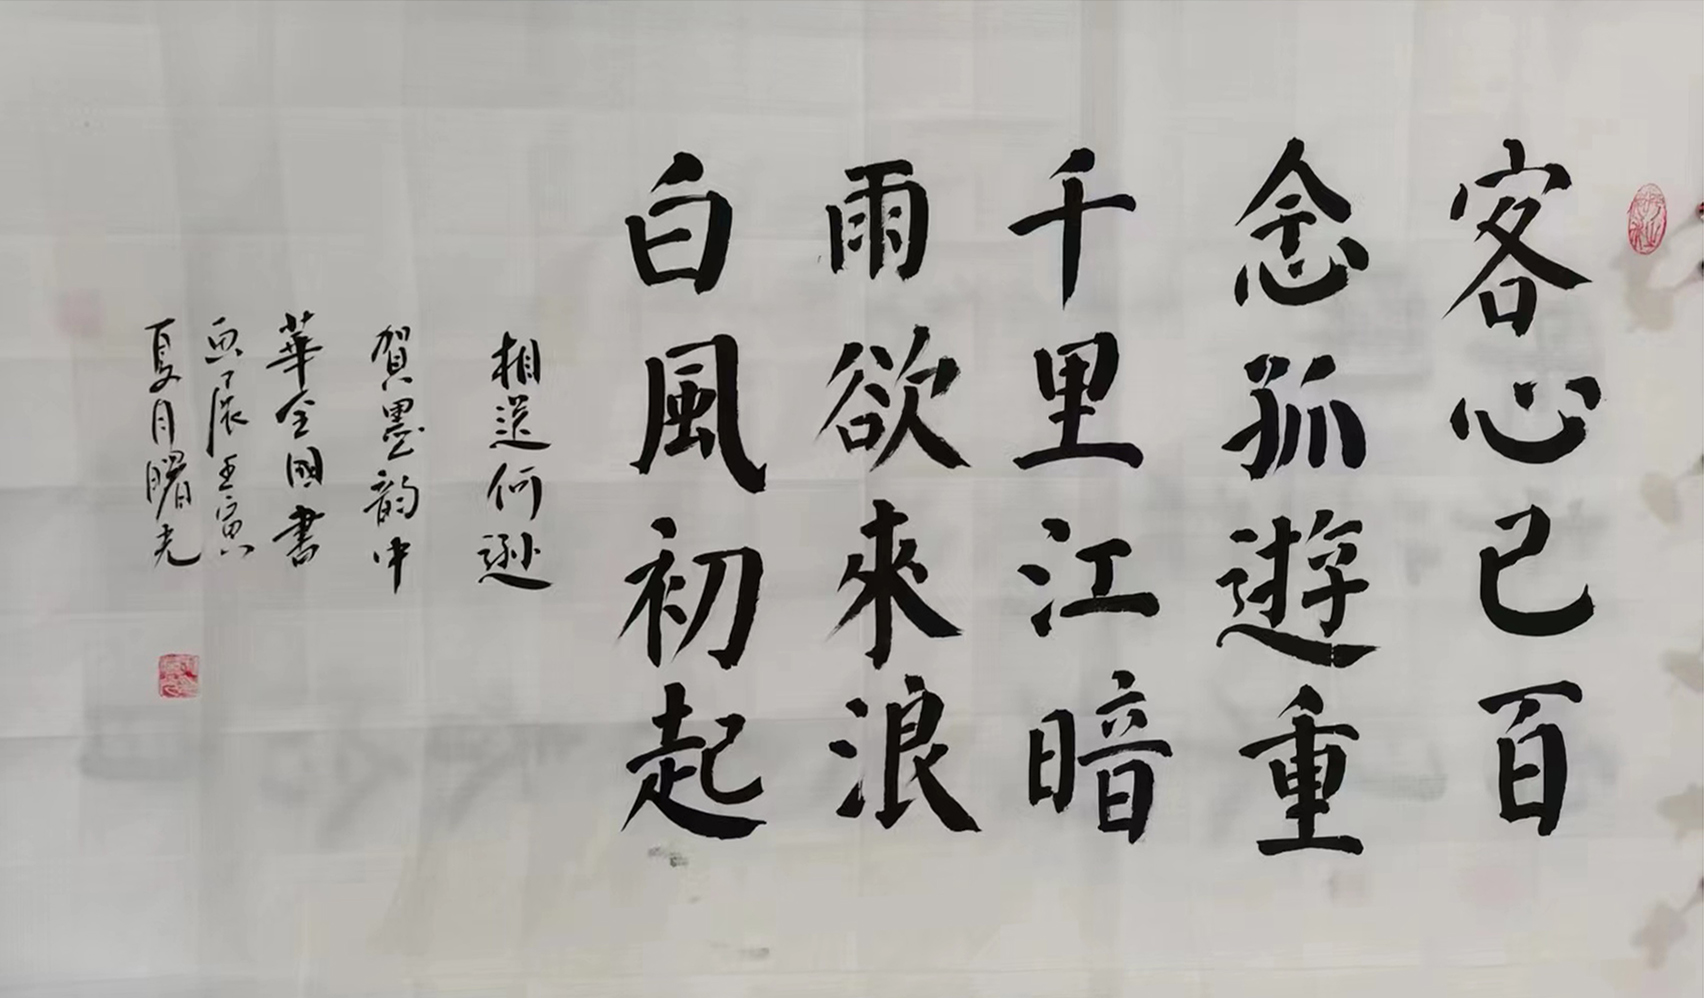 客心已百
念孤遊重
千里江暗
雨欲來浪
白風初起
相送何遜
賀墨韵中
華全國書
畫展壬寅
夏月曙光